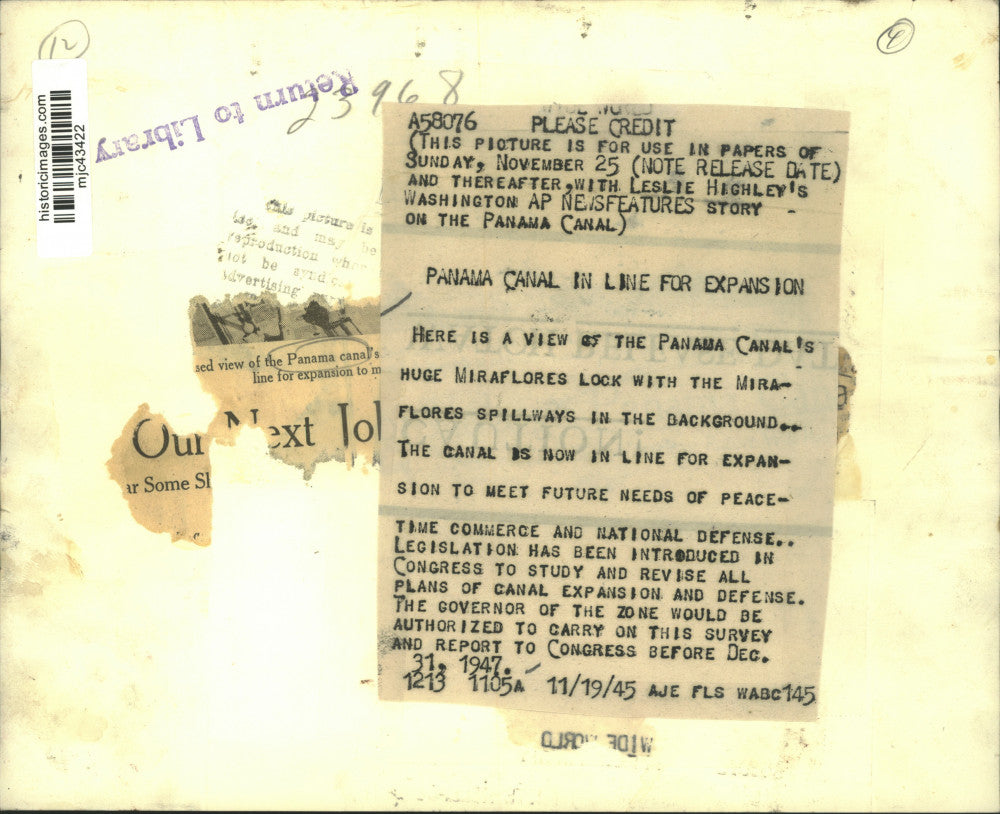 12
4
historicimages.com
mjc43422
Return to Library
23968
A58076 PLEASE CREDIT
(THIS PICTURE IS FOR USE IN PAPERS OF
SUNDAY, NOVEMBER 25 (NOTE RELEASE DATE)
AND THEREAFTER, WITH LESLIE HIGHLEY'S
WASHINGTON AP NEWSFEATURES STORY
ON THE PANAMA CANAL)
PANAMA CANAL IN LINE FOR EXPANSION
HERE IS A VIEW OF THE PANAMA CANAL'S
HUGE MIRAFLORES LOCK WITH THE MIRA-
FLORES SPILLWAYS IN THE BACKGROUND..
THE CANAL IS NOW IN LINE FOR EXPAN-
SION TO MEET FUTURE NEEDS OF PEACE-
TIME COMMERCE AND NATIONAL DEFENSE..
LEGISLATION HAS BEEN INTRODUCED IN
CONGRESS TO STUDY AND REVISE ALL
PLANS OF CANAL EXPANSION AND DEFENSE.
THE GOVERNOR OF THE ZONE WOULD BE
AUTHORIZED TO CARRY ON THIS SURVEY
AND REPORT TO CONGRESS BEFORE DEC.
31, 1947.
1213 1105A 11/19/45 AJE FLS WABC145
This picture is
and may be
reproduction
not be
advertising
sed view of the Panama canal's
line for expansion to m
Our Next Jo
ar Some Sl
CAUTION!
WIDE WORLD